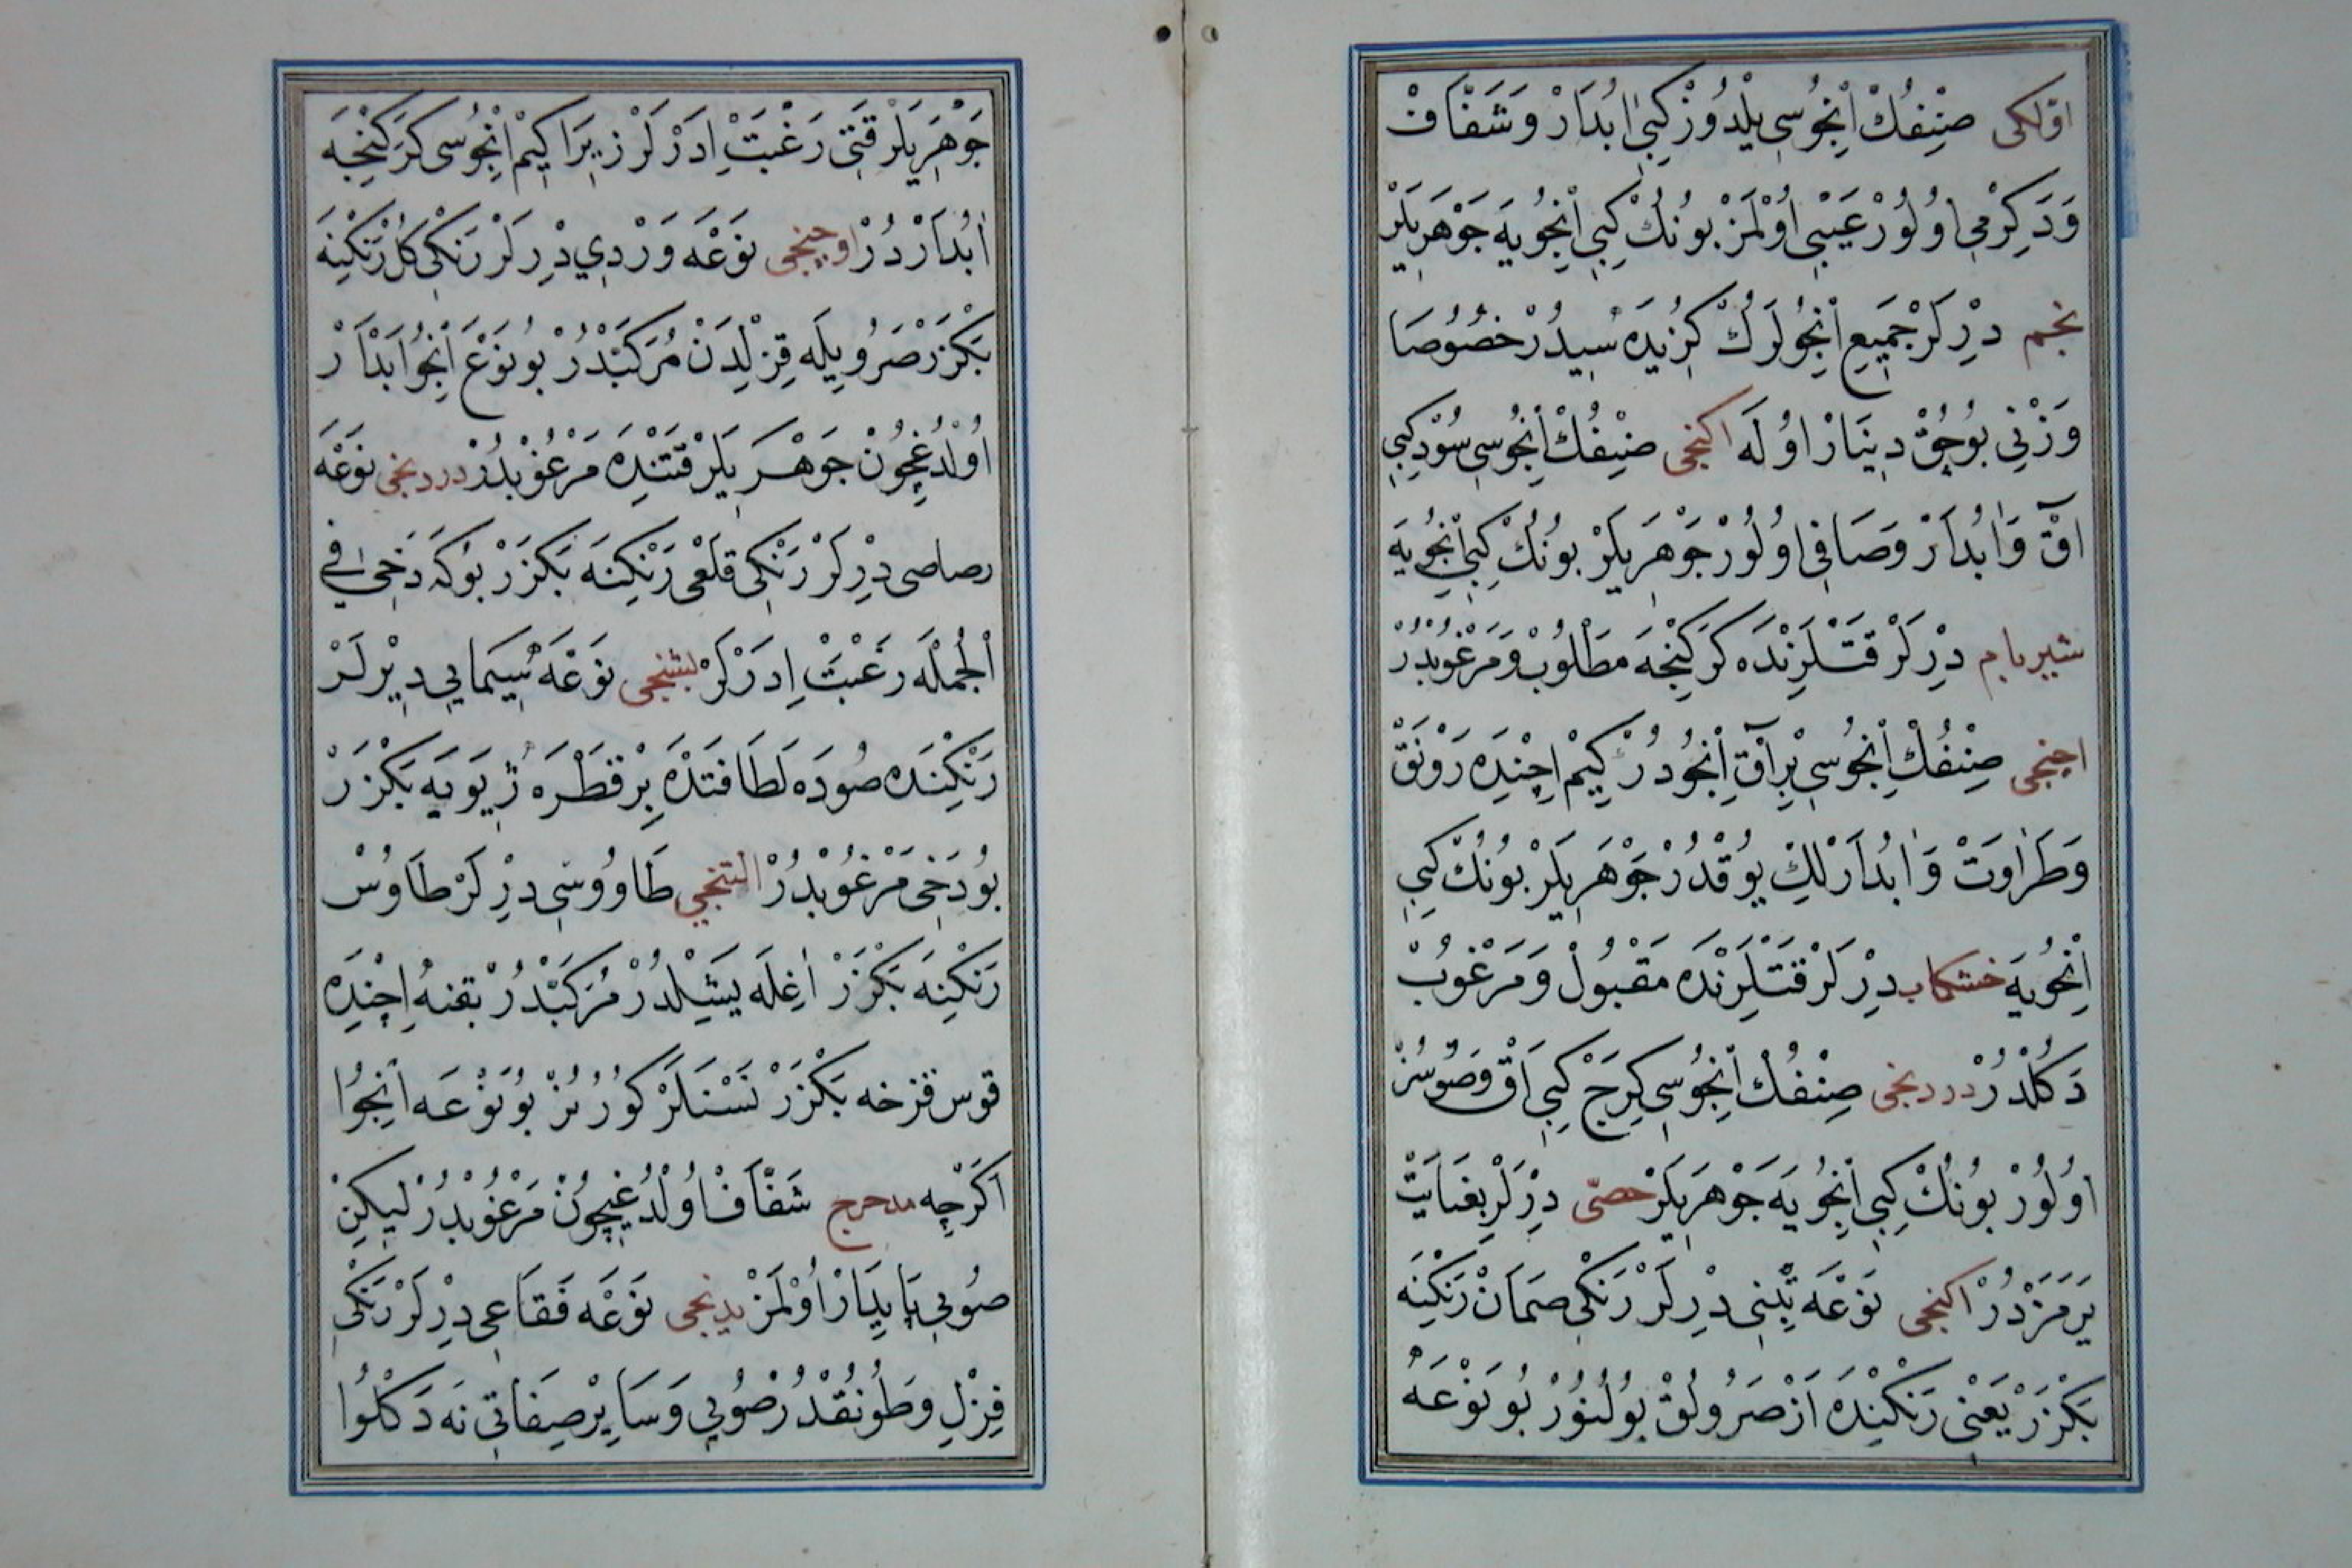 اوّلكى صِنِفُكْ اِنْجُوسِى يِلْدُوزْ كِبِى اٰبْدَارْ وَ شَفَّافْ
وَ دَكِرْمِى اُولُورْ عَيْبِى اُولْمَزْ بُونُكْ كِبِى اِنْجُويَه جَوْهَرِيلَرْ
نجم دِرْلَرْ جَمِيعِ اِنْجُولَرُكْ كُزِيدَه سِيدُرْ خُصُوصَا
وَزْنِى بُوچُقْ دِينَارْ اُولَه اكنجى صِنِفُكْ اِنْجُوسِى سُودْ كِبِى
اٰقْ وَ اٰبُدَارْ وَ صَافِى اُولُورْ جَوْهَرِيلَرْ بُونُكْ كِبِى اِنْجُويَه
شيربام دِرْلَرْ قَتْلَرِنْدَه كَرَكِنْجَه مَطْلُوبْ وَ مَرْغُوبْدُرْ
اچنجى صِنِفُكْ اِنْجُوسِى بِرْ اٰقْ اِنْجُودُرْ كِيمْ اِچِنْدَه رَوْنَقْ
وَ طَرَاوَتْ وَ اٰبُدَارْلِكْ يُوقْدُرْ جَوْهَرِيلَرْ بُونُكْ كِبِى
اِنْجُويَه خشكاب دِرْلَرْ قَتْلَرِنْدَه مَقْبُولْ وَ مَرْغُوبْ
دَكُلْدُرْ دردنجى صِنِفُكْ اِنْجُوسِى كِرَجْ كِبِى اَقْ وَ صُوسُزْ
اُولُورْ بُونُكْ كِبِى اِنْجُويَه جَوْهَرِيلَرْ حصّى دِرْلَرْ بِغَايَتْ
يَرَمَزْدُرْ اكنجى نَوْعَه تِبْنِى دِرْلَرْ رَنْكِى صَمَانْ رَنْكِنَه
بَكْزَرْ يَعْنِى رَنْكِنْدَه اَزْ صَرُولُقْ بُولُنُورْ بُو نَوْعَه
جَوْهَرِيلَرْ قَتِى رَغْبَتْ اِدَرْلَرْ زِيرَا كِيمْ اِنْجُوسِى كَرَكِنْجَه
اٰبُدَارْدُرْ اوچنجى نَوْعَه وَرْدِي دِرْلَرْ رَنْكِى كُلْ رَنْكِنَه
بَكْزَرْ صَرُويِلَه قِزِلْدَنْ مُرَكَّبْدُرْ بُو نَوْعْ اِنْجُو اٰبْدَارْ
اُولْدُغِچُونْ جَوْهَرِيلَرْ قَتِنْدَه مَرْغُوبْدُرْ دردنجى نَوْعَه
رصاصى دِرْلَرْ رَنْكِى قَلَعِى رَنْكِنَه بَكْزَرْ بُوكَه دَخِى فِى
اَلْجُمْلَه رَغْبَتْ اِدَرْلَرْ بشنجى نَوْعَه سِيمَابِى دِيرْلَرْ
رَنْكِنْدَه صُودَه لَطَافَتْدَه بِرْ قَطْرَه ژِيوَيَه بَكْزَرْ
بُودَخِى مَرْغُوبْدُرْ التنجى طَاوُوسِى دِرْلَرْ طَاوُسْ
رَنْكِنَه بَكْزَرْ اٰغِلَه يَشِلْدُرْ مُرَكَّبْدُرْ يقنه اِچِنْدَه
قوس قزخه بَكْزَرْ نَسْنَلَرْ كُورُنُرْ بُو نَوْعَه اِنْجُوا
اَكَرْچِه مدحرج شَفَّافْ اُولْدُغِيچُونْ مَرْغُوبْدُرْ لِيكِنْ
صُويِى پَايِدَارْ اُولْمَزْ يدنجى نَوْعَه فَقَاعِى دِرْلَرْ رَنْكِى
قِزِلِ وَ طُونُقْدُرْ صُويِى وَ سَايِرْ صِفَاتِى نَه دَكْلُوا